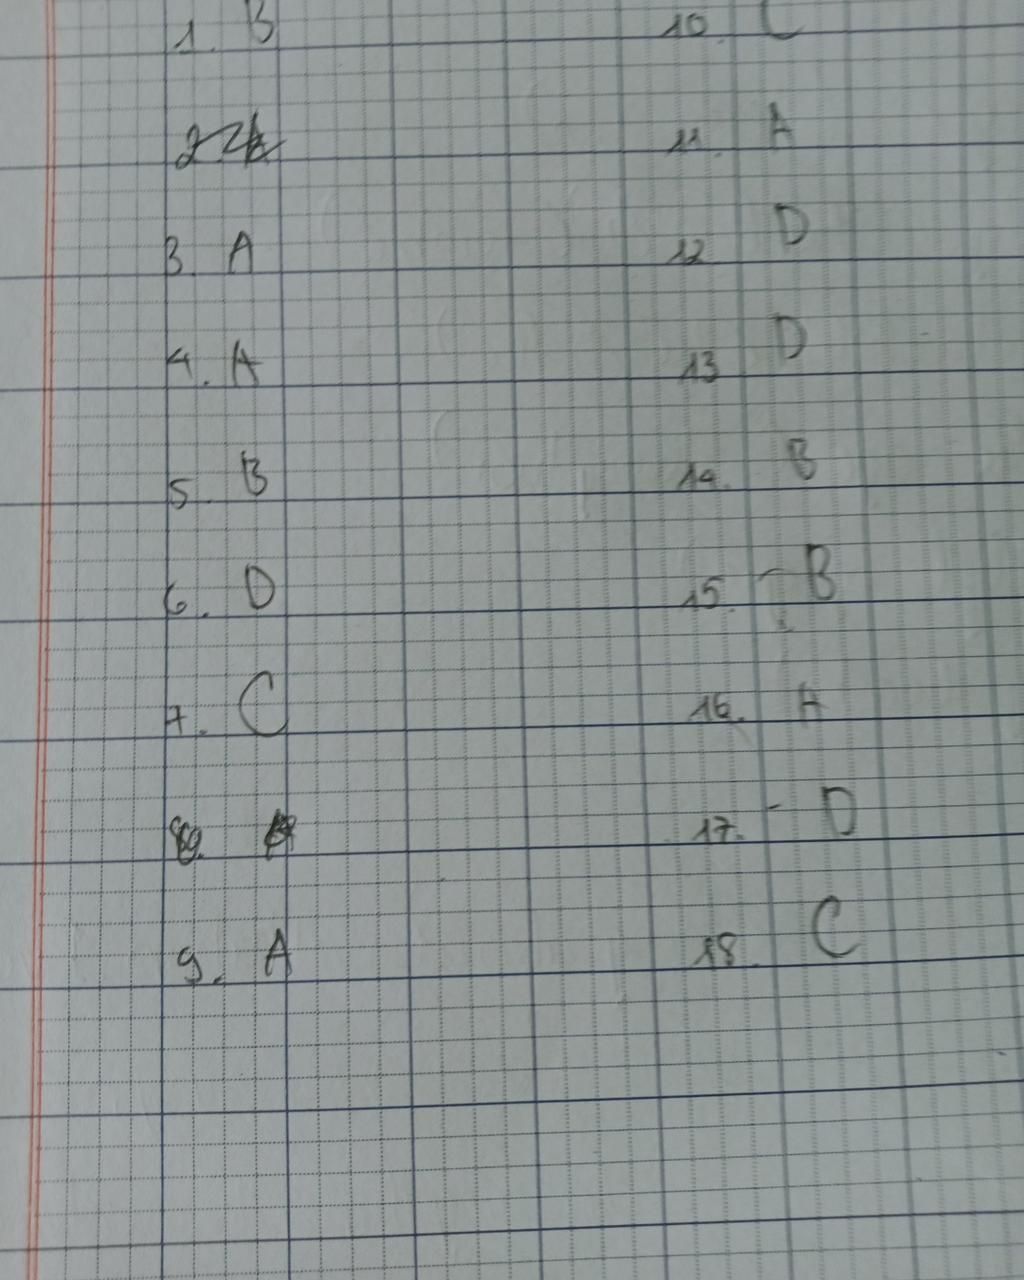 1. B
3. A
4. A
5. B
6. D
7. C
9. A
10. C
11. A
12 D
13 D
14. B
15. - B
16. A
17. - D
18. C